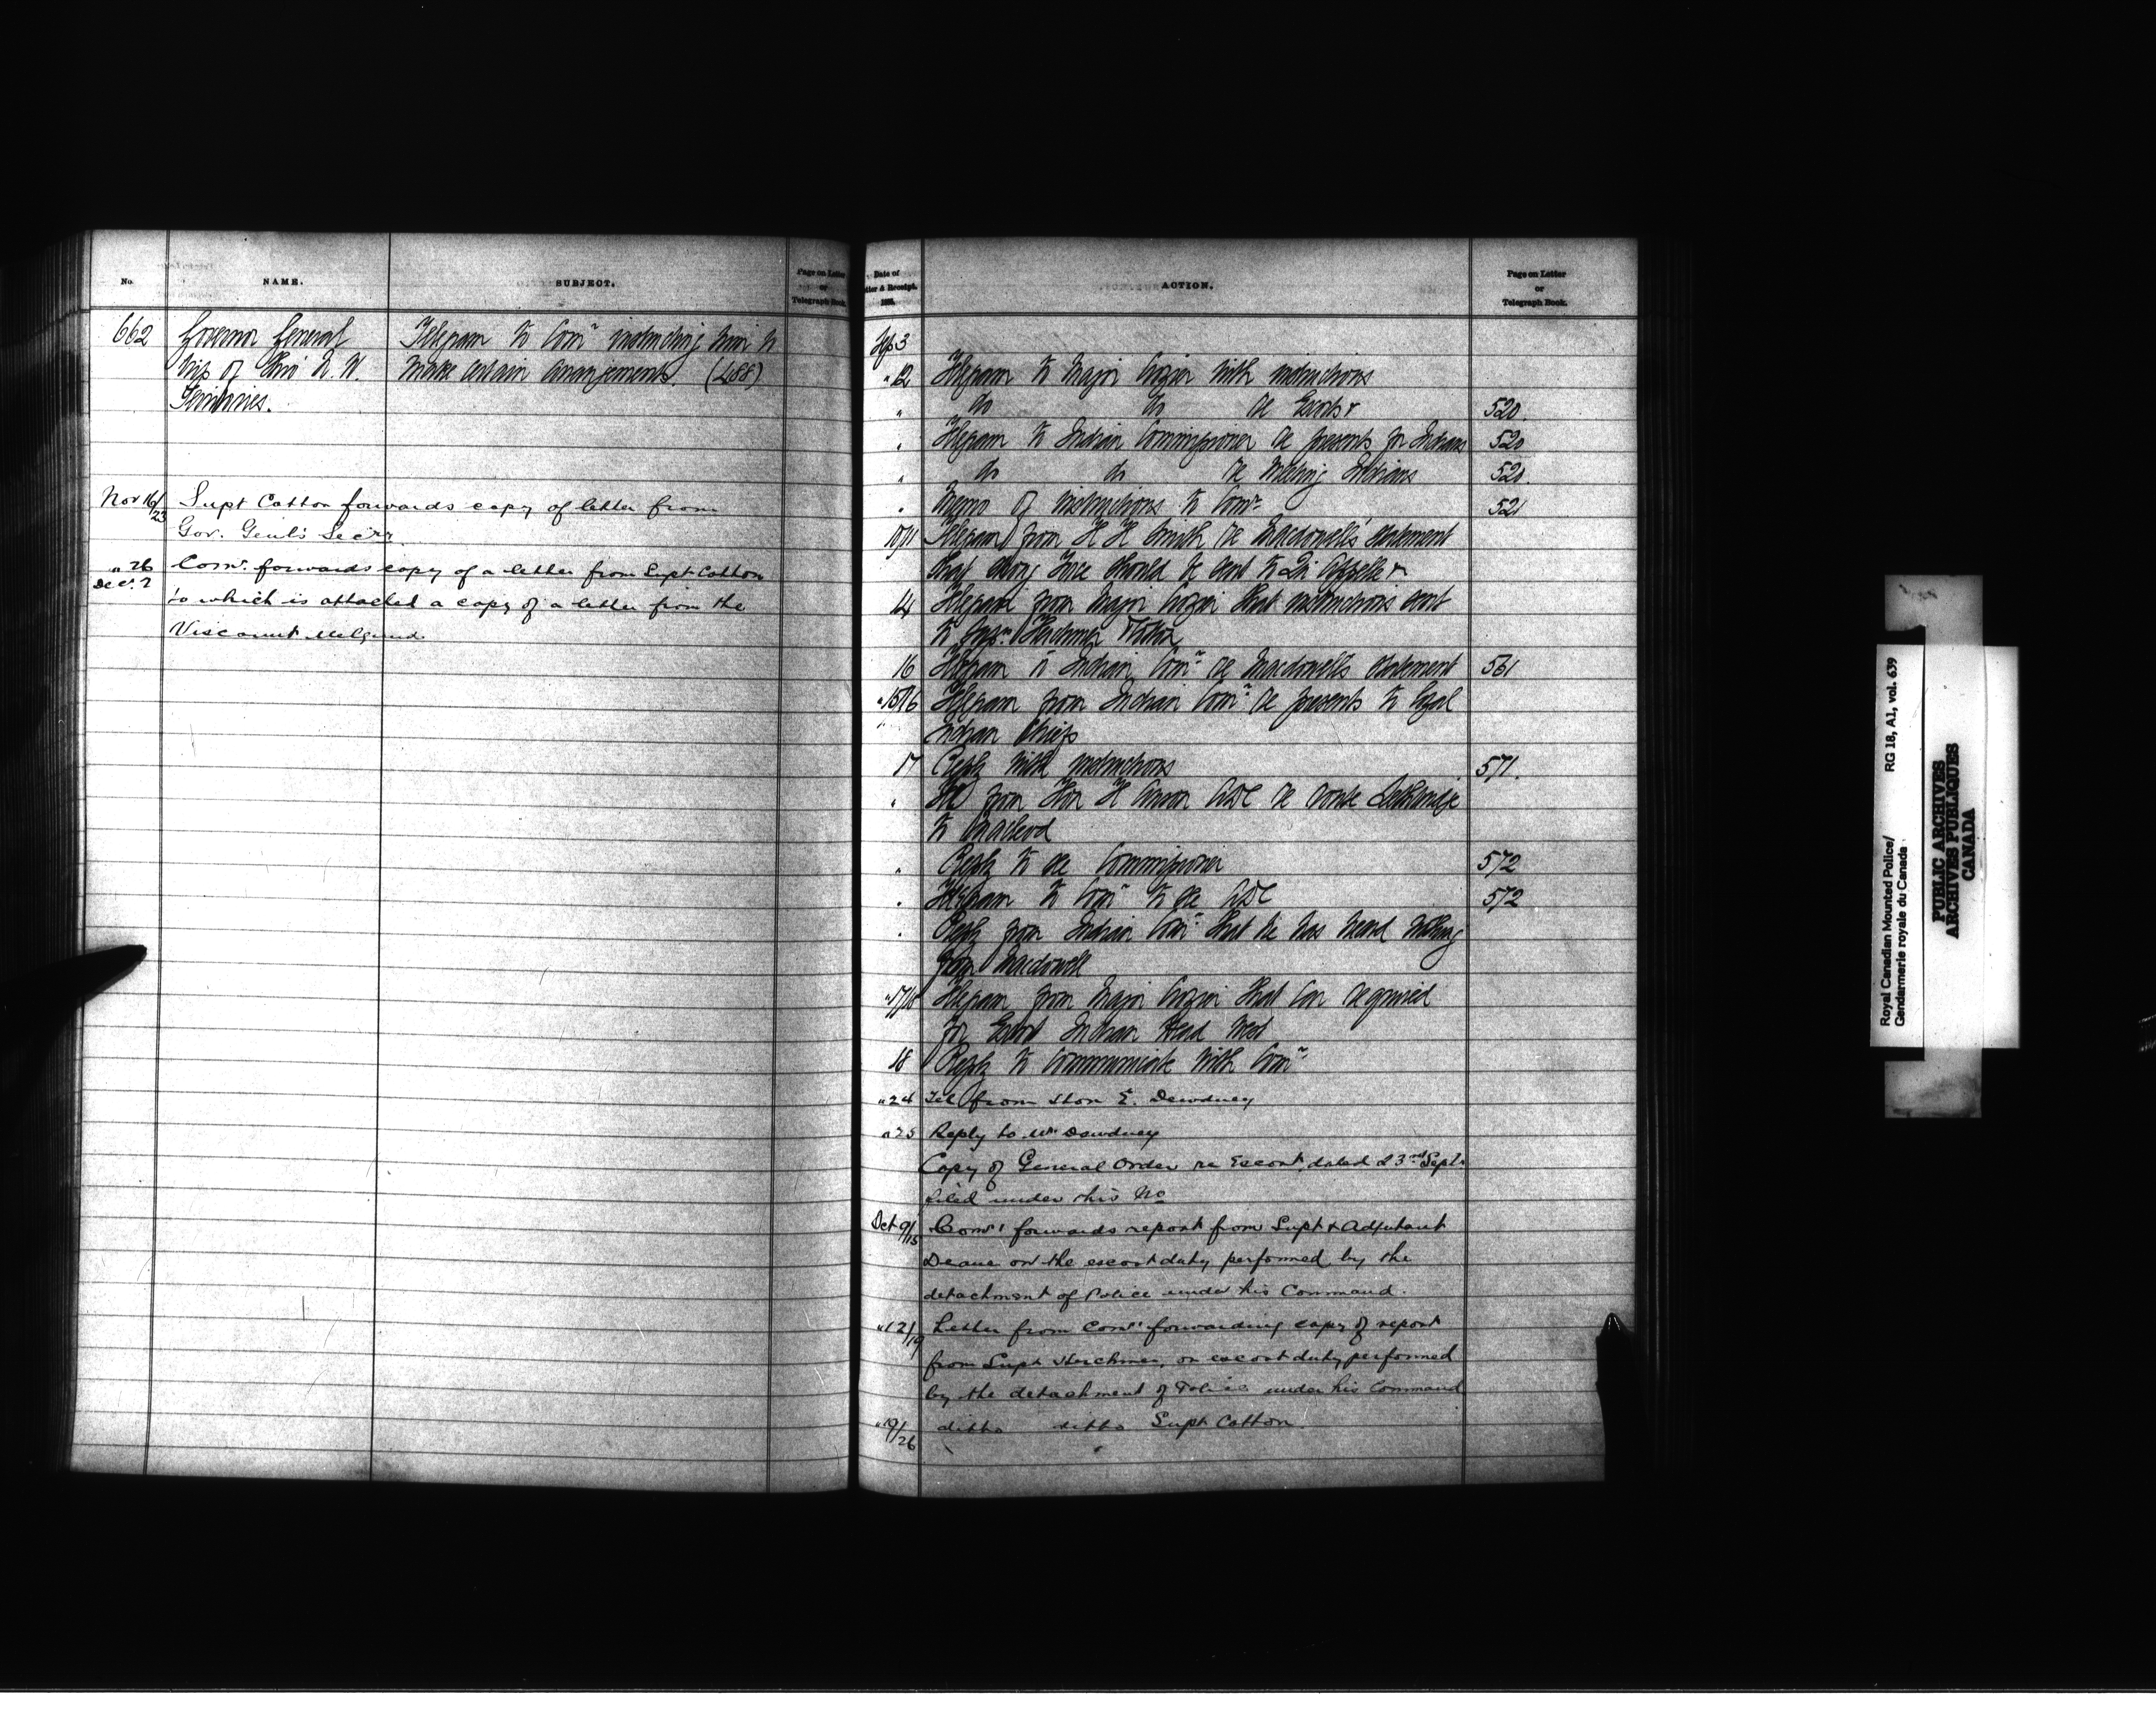 No.
NAME.
SUBJECT.
Page on Letter
or
Telegraph Book.
662 Governor General Telegram to Comr instructing him to
trip of thro' N. W. make certain arrangements. (488)
Territories.
Nov 16/23 Supt Cotton forwards copy of letter from
Gov. Genl's Secry.
" 26 Comr. forwards copy of a letter from Supt Cotton
Decr. 2 to which is attached a copy of a letter from the
Viscount Melgund.
Date of
Letter & Receipt.
188
ACTION.
Page on Letter
or
Telegraph Book.
Sep 3
" 12 Telegram to Major Crozier with instructions
" do do re Escort 520
" Telegram to Indian Commissioner re presents for Indians 520
" do do re meeting Indians 520
" Memo of instructions to Comr 521
10/11 Telegram from H H Smith re Macdowell's statement
that strong Force should be sent to Qu'Appelle
14 Telegram from Major Crozier that instructions sent
to Herchmer
16 Telegram to Indian Comr re Macdowell's statement 561
" 15/16 Telegram from Indian Comr re presents to loyal
Indian Chiefs
17 Reply with instructions 571.
" from Hon H Anson ADC re route Lethbridge
to Macleod
" Reply to see Commissioner 572
" Telegram to Comr to see ADC 572
" Reply from Indian Comr that he has heard nothing
from Macdowell
" 17/18 Telegram from Major Crozier that car required
for Escort Indian Head West
18 Reply to communicate with Comr
" 24 Tel from Hon E. Dewdney
" 25 Reply to Mr Dewdney
Copy of General Order re Escort, dated 23rd Sept.
filed under this No
Oct 9/15 Comr forwards report from Supt & Adjutant
Deane on the escort duty performed by the
detachment of Police under his Command.
" 12/19 Letter from Comr forwarding copy of report
from Supt Herchmer, on escort duty performed
by the detachment of Police under his Command
" 19/26 ditto ditto Supt Cotton.
Royal Canadian Mounted Police/
Gendarmerie royale du Canada
RG 18, A1, vol. 639
PUBLIC ARCHIVES
ARCHIVES PUBLIQUES
CANADA